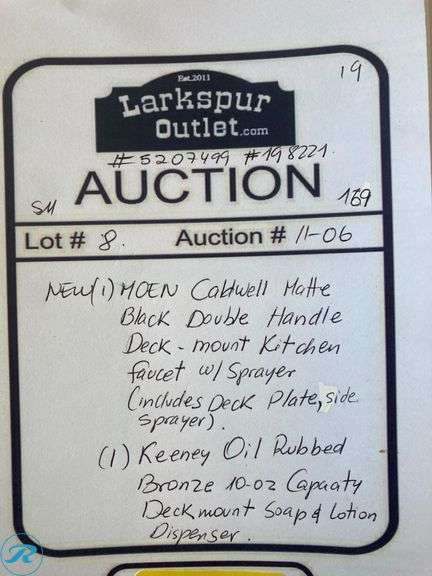 19
Est.2011
Larkspur
Outlet.com
#5207499 #198221.
AUCTION
SM
169
Lot # 8. Auction # 11-06
NEW (1) MOEN Caldwell Matte
Black Double Handle
Deck-mount Kitchen
faucet w/ Sprayer
(includes Deck Plate, side
sprayer).
(1) Keeney Oil Rubbed
Bronze 10-oz Capacity
Deckmount Soap & Lotion
Dispenser.
R